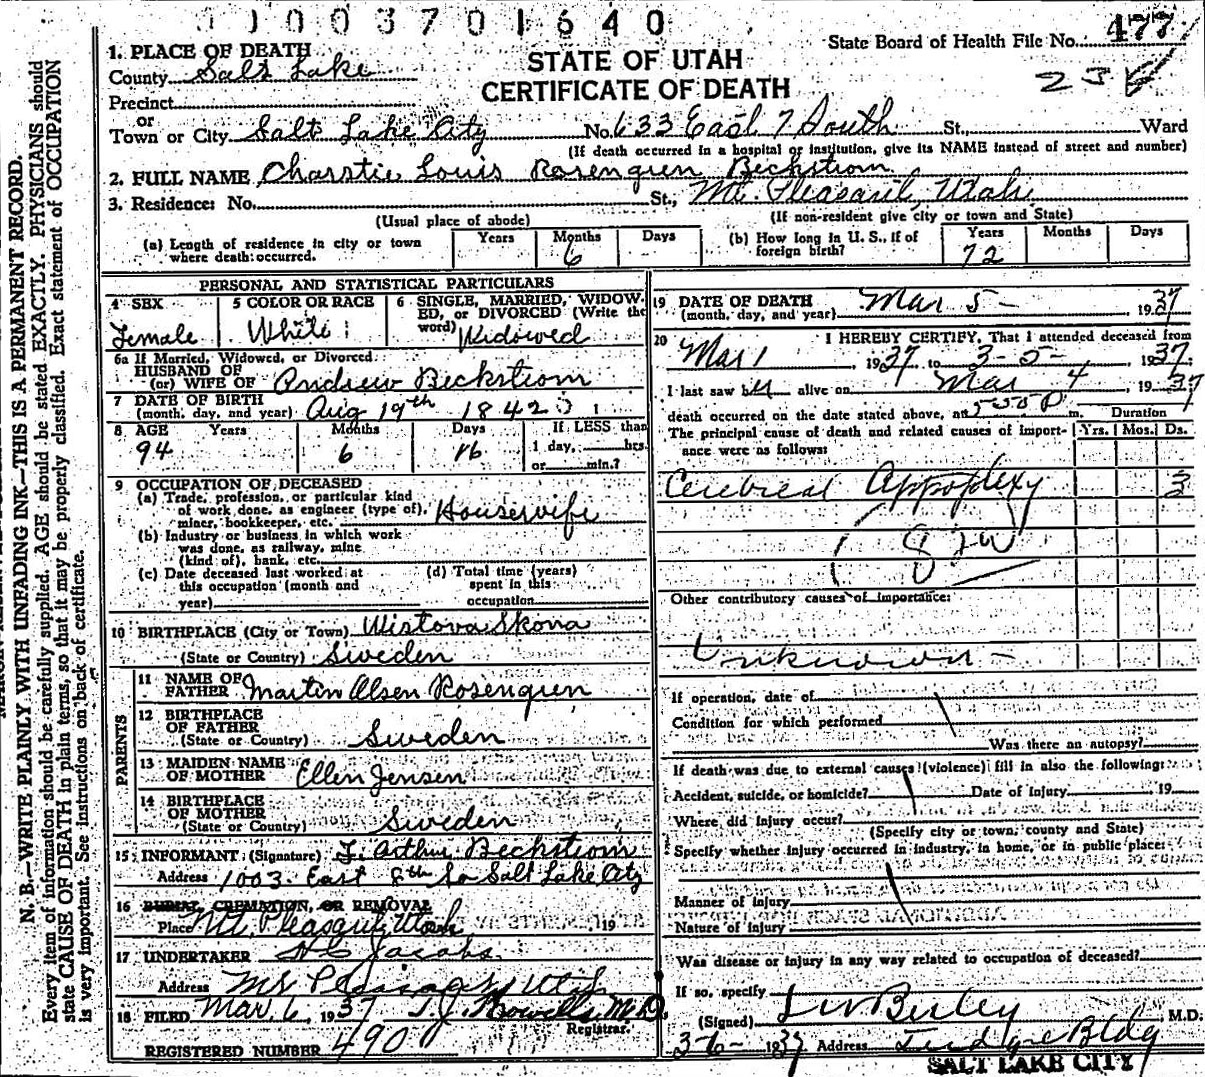 0003701640
1. PLACE OF DEATH
County Salt Lake
Precinct
or
Town or City Salt Lake City No. 633 East 7 South St., Ward
(If death occurred in a hospital or institution, give its NAME instead of street and number)
STATE OF UTAH
CERTIFICATE OF DEATH
State Board of Health File No. 477
2. FULL NAME Charstie Louis Rosenqren Beckstrom
3. Residence: No. St., Mt. Pleasant, Utah
(Usual place of abode) (If non-resident give city or town and State)
(a) Length of residence in city or town where death occurred. Years Months 6 Days
(b) How long in U. S., if of foreign birth? Years 72 Months Days
PERSONAL AND STATISTICAL PARTICULARS
4 SEX Female
5 COLOR OR RACE White
6 SINGLE, MARRIED, WIDOWED, OR DIVORCED (Write the word) Widowed
6a If Married, Widowed, or Divorced
HUSBAND OF
(or) WIFE OF Andrew Beckstrom
7 DATE OF BIRTH
(month, day, and year) Aug 19th 1842
8 AGE Years 94 Months 6 Days 16 If LESS than 1 day, hrs. or min.?
9 OCCUPATION OF DECEASED
(a) Trade, profession, or particular kind of work done, as engineer (type of), miner, bookkeeper, etc. Housewife
(b) Industry or business in which work was done, as railway, mine (kind of), bank, etc.
(c) Date deceased last worked at this occupation (month and year)
(d) Total time (years) spent in this occupation
10 BIRTHPLACE (City or Town) Wistova Skona
(State or Country) Sweden
PARENTS
11 NAME OF FATHER Martin Olsen Rosenqren
12 BIRTHPLACE OF FATHER
(State or Country) Sweden
13 MAIDEN NAME OF MOTHER Ellen Jensen
14 BIRTHPLACE OF MOTHER
(State or Country) Sweden
15 INFORMANT (Signature) F. Arthur Beckstrom
Address 1003 East 8th So Salt Lake City
16 BURIAL, CREMATION, OR REMOVAL
Place Mt. Pleasant, Utah 19
17 UNDERTAKER N C Jacobs
Address Mt Pleasant Utah
18 FILED Mar. 6, 1937 T. J. Howells M.D.
Registrar.
REGISTERED NUMBER 490
19 DATE OF DEATH
(month, day, and year) Mar 5- 1937
20 I HEREBY CERTIFY, That I attended deceased from
Mar 1 1937 to 3-5- 1937
I last saw her alive on Mar 4, 1937
death occurred on the date stated above, at 555 P m. Duration
The principal cause of death and related causes of importance were as follows: Yrs. Mos. Ds.
Cerebreal Appoplexy 3
Other contributory causes of importance:
Unknown -
If operation, date of
Condition for which performed
Was there an autopsy?
If death was due to external causes (violence) fill in also the following:
Accident, suicide, or homicide? Date of injury 19
Where did injury occur?
(Specify city or town, county and State)
Specify whether injury occurred in industry, in home, or in public place:
Manner of injury
Nature of injury
Was disease or injury in any way related to occupation of deceased?
If so, specify
(Signed) M.D.
3-6- 1937 Address Bldg
SALT LAKE CITY
N. B.—WRITE PLAINLY, WITH UNFADING INK—THIS IS A PERMANENT RECORD.
Every item of information should be carefully supplied. AGE should be stated EXACTLY. PHYSICIANS should
state CAUSE OF DEATH in plain terms, so that it may be properly classified. Exact statement of OCCUPATION
is very important. See instructions on back of certificate.